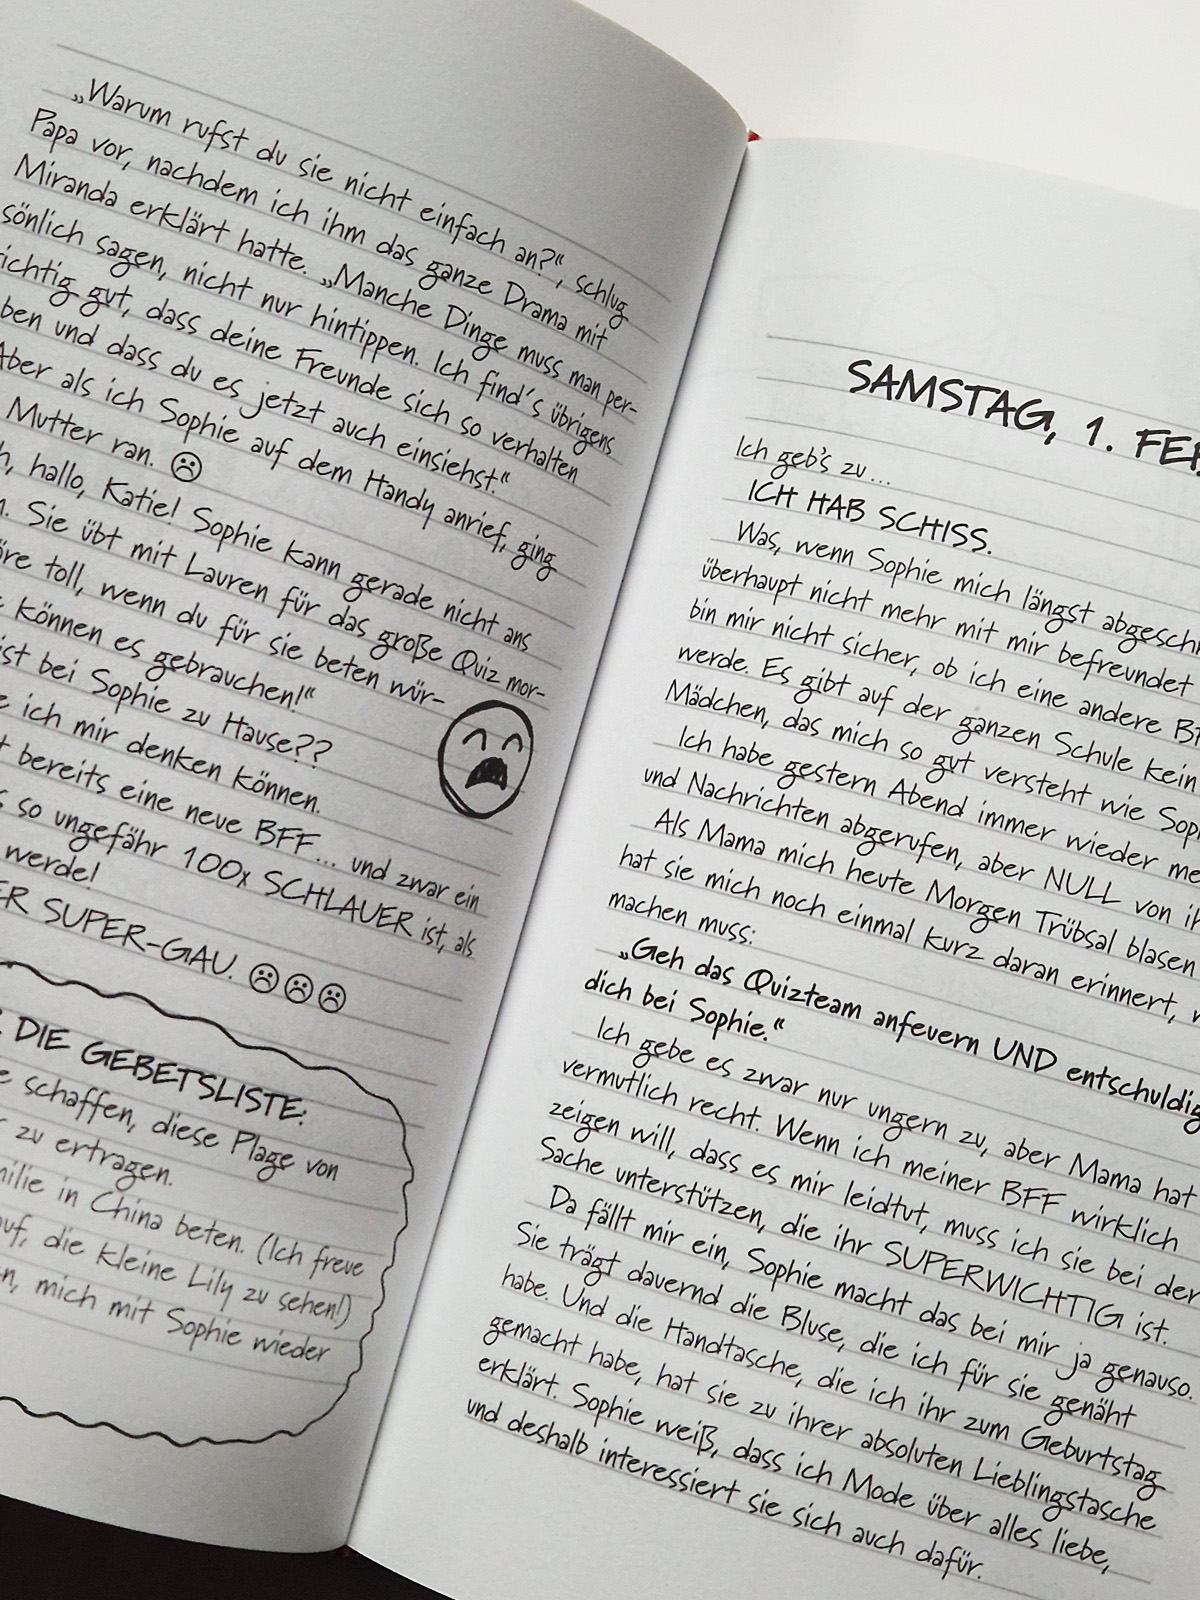 „Warum rufst du sie nicht einfach an?“, schlug
Papa vor, nachdem ich ihm das ganze Drama mit
Miranda erklärt hatte. „Manche Dinge muss man per-
sönlich sagen, nicht nur hintippen. Ich find's übrigens
richtig gut, dass deine Freunde sich so verhalten
ben und dass du es jetzt auch einsiehst.“
Aber als ich Sophie auf dem Handy anrief, ging
Mutter ran. ☹
h, hallo, Katie! Sophie kann gerade nicht ans
n. Sie übt mit Lauren für das große Quiz mor-
äre toll, wenn du für sie beten wür-
e können es gebrauchen!“
ist bei Sophie zu Hause??
e ich mir denken können.
t bereits eine neue BFF... und zwar ein
s so ungefähr 100x SCHLAUER ist, als
werde!
ER SUPER-GAU. ☹☹☹
DIE GEBETSLISTE:
e schaffen, diese Plage von
r zu ertragen.
milie in China beten. (Ich freue
auf, die kleine Lily zu sehen!)
en, mich mit Sophie wieder
SAMSTAG, 1. FEB
Ich geb's zu...
ICH HAB SCHISS.
Was, wenn Sophie mich längst abgeschr
überhaupt nicht mehr mit mir befreundet
bin mir nicht sicher, ob ich eine andere BF
werde. Es gibt auf der ganzen Schule kein
Mädchen, das mich so gut versteht wie Soph
Ich habe gestern Abend immer wieder me
und Nachrichten abgerufen, aber NULL von ih
Als Mama mich heute Morgen Trübsal blasen
hat sie mich noch einmal kurz daran erinnert, w
machen muss:
„Geh das Quizteam anfeuern UND entschuldig
dich bei Sophie.“
Ich gebe es zwar nur ungern zu, aber Mama hat
vermutlich recht. Wenn ich meiner BFF wirklich
zeigen will, dass es mir leidtut, muss ich sie bei der
Sache unterstützen, die ihr SUPERWICHTIG ist.
Da fällt mir ein, Sophie macht das bei mir ja genauso.
Sie trägt dauernd die Bluse, die ich für sie genäht
habe. Und die Handtasche, die ich ihr zum Geburtstag
gemacht habe, hat sie zu ihrer absoluten Lieblingstasche
erklärt. Sophie weiß, dass ich Mode über alles liebe,
und deshalb interessiert sie sich auch dafür.